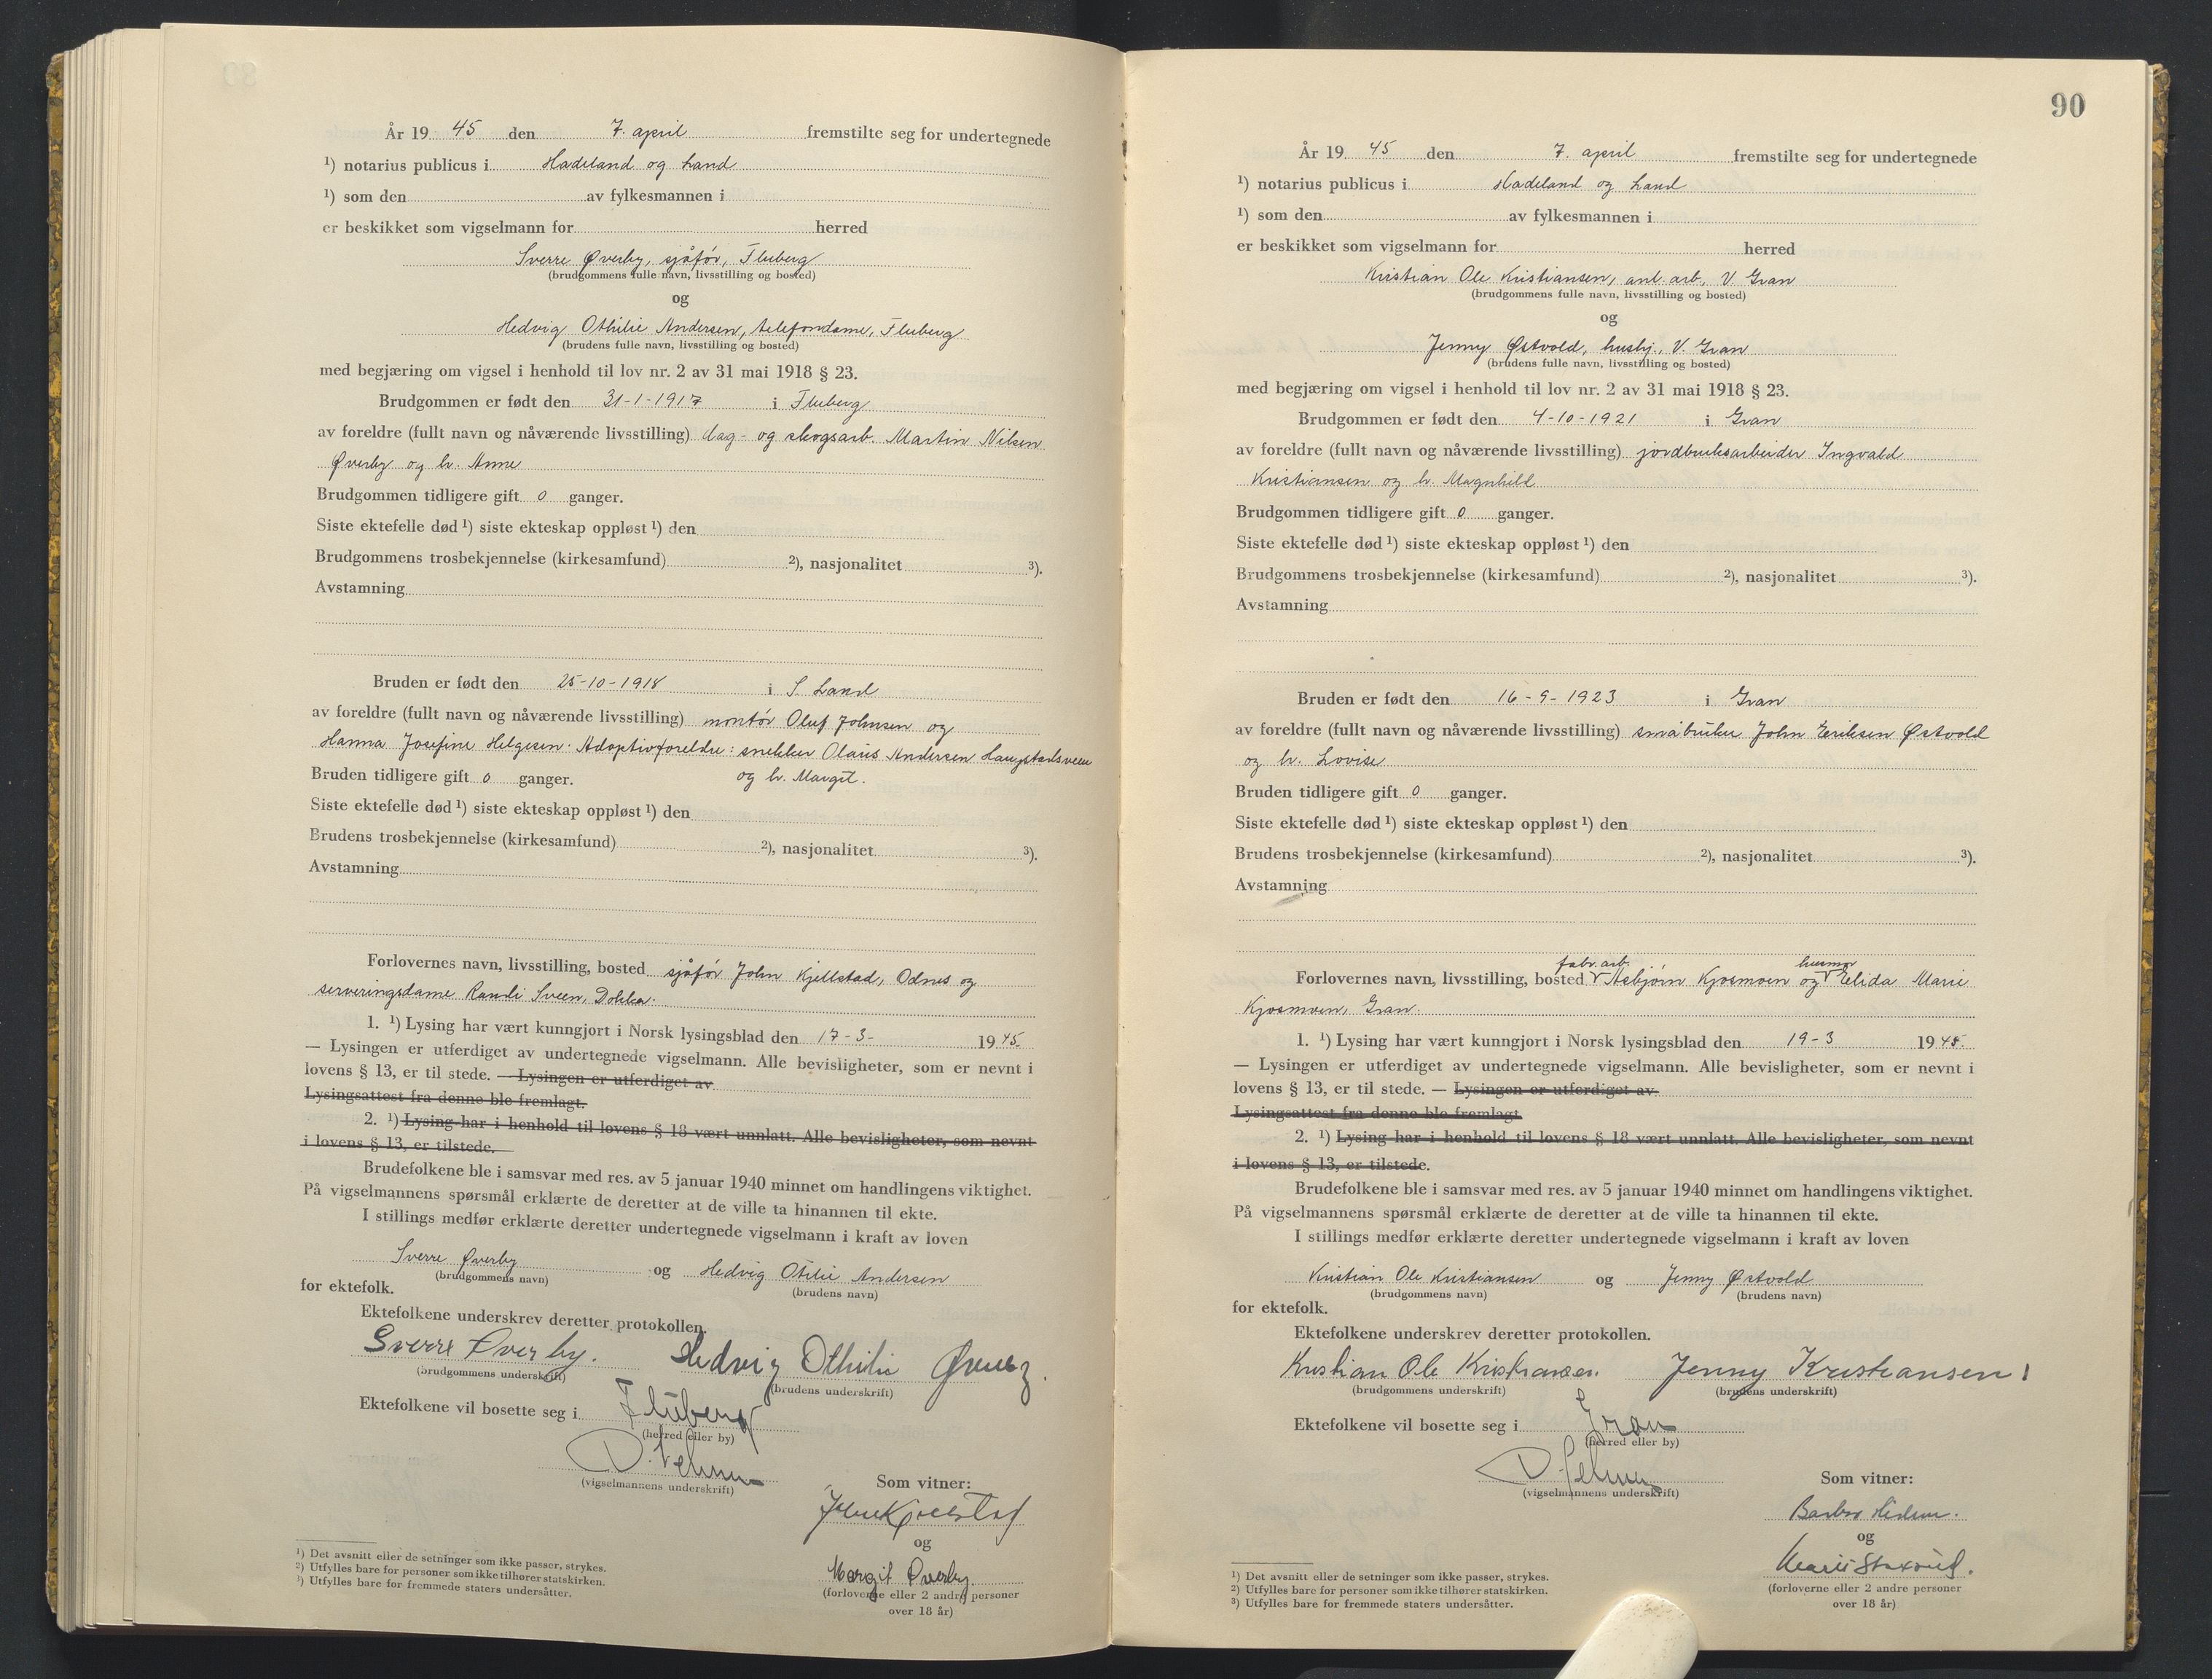 År 19 45 den 7. april fremstilte seg for undertegnede
¹) notarius publicus i Hadeland og Land
¹) som den av fylkesmannen i
er beskikket som vigselmann for herred
Sverre Øverby, sjåfór, Fluberg
(brudgommens fulle navn, livsstilling og bosted)
og
Hedvig Othilie Andersen, telefondame, Fluberg
(brudens fulle navn, livsstilling og bosted)
med begjæring om vigsel i henhold til lov nr. 2 av 31 mai 1918 § 23.
Brudgommen er født den 31-1-1917 i Fluberg
av foreldre (fullt navn og nåværende livsstilling) dag- og skogsarb. Martin Nilsen
Øverby og h. Anne
Brudgommen tidligere gift 0 ganger.
Siste ektefelle død ¹) siste ekteskap oppløst ¹) den
Brudgommens trosbekjennelse (kirkesamfund) ²), nasjonalitet ³).
Avstamning
Bruden er født den 25-10-1918 i S. Land
av foreldre (fullt navn og nåværende livsstilling) montór Oluf Johnsen og
Hanna Josefine Helgesen. Adoptivforeldre: snekker Olaus Andersen Haugstadsveen
og h. Margit.
Bruden tidligere gift 0 ganger.
Siste ektefelle død ¹) siste ekteskap oppløst ¹) den
Brudens trosbekjennelse (kirkesamfund) ²), nasjonalitet ³).
Avstamning
Forlovernes navn, livsstilling, bosted sjåfór John Kjellstad, Odnes og
serveringsdame Randi Sveen, Dokka.
1. ¹) Lysing har vært kunngjort i Norsk lysingsblad den 17-3- 19 45.
— Lysingen er utferdiget av undertegnede vigselmann. Alle bevisligheter, som er nevnt i
lovens § 13, er til stede. — Lysingen er utferdiget av
Lysingsattest fra denne ble fremlagt.
2. ¹) Lysing har i henhold til lovens § 18 vært unnlatt. Alle bevisligheter, som nevnt
i lovens § 13, er tilstede.
Brudefolkene ble i samsvar med res. av 5 januar 1940 minnet om handlingens viktighet.
På vigselmannens spørsmål erklærte de deretter at de ville ta hinannen til ekte.
I stillings medfør erklærte deretter undertegnede vigselmann i kraft av loven
Sverre Øverby og Hedvig Otilie Andersen
(brudgommens navn) (brudens navn)
for ektefolk.
Ektefolkene underskrev deretter protokollen.
Sverre Øverby. Hedvig Othilie Øverby.
(brudgommens underskrift) (brudens underskrift)
Ektefolkene vil bosette seg i Fluberg
(herred eller by)
(vigselmannens underskrift)
Som vitner:
John Kjellstad
og
Margit Øverby.
(forloverne eller 2 andre personer
over 18 år)
¹) Det avsnitt eller de setninger som ikke passer, strykes.
²) Utfylles bare for personer som ikke tilhører statskirken.
³) Utfylles bare for fremmede staters undersåtter.
90
År 19 45 den 7. april fremstilte seg for undertegnede
¹) notarius publicus i Hadeland og Land
¹) som den av fylkesmannen i
er beskikket som vigselmann for herred
Kristian Ole Kristiansen, anl. arb., V. Gran
(brudgommens fulle navn, livsstilling og bosted)
og
Jenny Østvold, husbj., V. Gran
(brudens fulle navn, livsstilling og bosted)
med begjæring om vigsel i henhold til lov nr. 2 av 31 mai 1918 § 23.
Brudgommen er født den 4-10-1921 i Gran
av foreldre (fullt navn og nåværende livsstilling) jordbruksarbeider Ingvald
Kristiansen og h. Magnhild
Brudgommen tidligere gift 0 ganger.
Siste ektefelle død ¹) siste ekteskap oppløst ¹) den
Brudgommens trosbekjennelse (kirkesamfund) ²), nasjonalitet ³).
Avstamning
Bruden er født den 16-9-1923 i Gran
av foreldre (fullt navn og nåværende livsstilling) småbruker John Eriksen Østvold
og h. Lovise
Bruden tidligere gift 0 ganger.
Siste ektefelle død ¹) siste ekteskap oppløst ¹) den
Brudens trosbekjennelse (kirkesamfund) ²), nasjonalitet ³).
Avstamning
fabr. arb. husmor
Forlovernes navn, livsstilling, bosted Asbjørn Kjosmoen og Elida Marie
Kjosmoen, Gran.
1. ¹) Lysing har vært kunngjort i Norsk lysingsblad den 19-3 19 45.
— Lysingen er utferdiget av undertegnede vigselmann. Alle bevisligheter, som er nevnt i
lovens § 13, er til stede. — Lysingen er utferdiget av
Lysingsattest fra denne ble fremlagt.
2. ¹) Lysing har i henhold til lovens § 18 vært unnlatt. Alle bevisligheter, som nevnt
i lovens § 13, er tilstede.
Brudefolkene ble i samsvar med res. av 5 januar 1940 minnet om handlingens viktighet.
På vigselmannens spørsmål erklærte de deretter at de ville ta hinannen til ekte.
I stillings medfør erklærte deretter undertegnede vigselmann i kraft av loven
Kristian Ole Kristiansen og Jenny Østvold
(brudgommens navn) (brudens navn)
for ektefolk.
Ektefolkene underskrev deretter protokollen.
Kristian Ole Kristiansen. Jenny Kristiansen
(brudgommens underskrift) (brudens underskrift)
Ektefolkene vil bosette seg i Gran
(herred eller by)
(vigselmannens underskrift)
Som vitner:
Barbro
og
(forloverne eller 2 andre personer
over 18 år)
¹) Det avsnitt eller de setninger som ikke passer, strykes.
²) Utfylles bare for personer som ikke tilhører statskirken.
³) Utfylles bare for fremmede staters undersåtter.